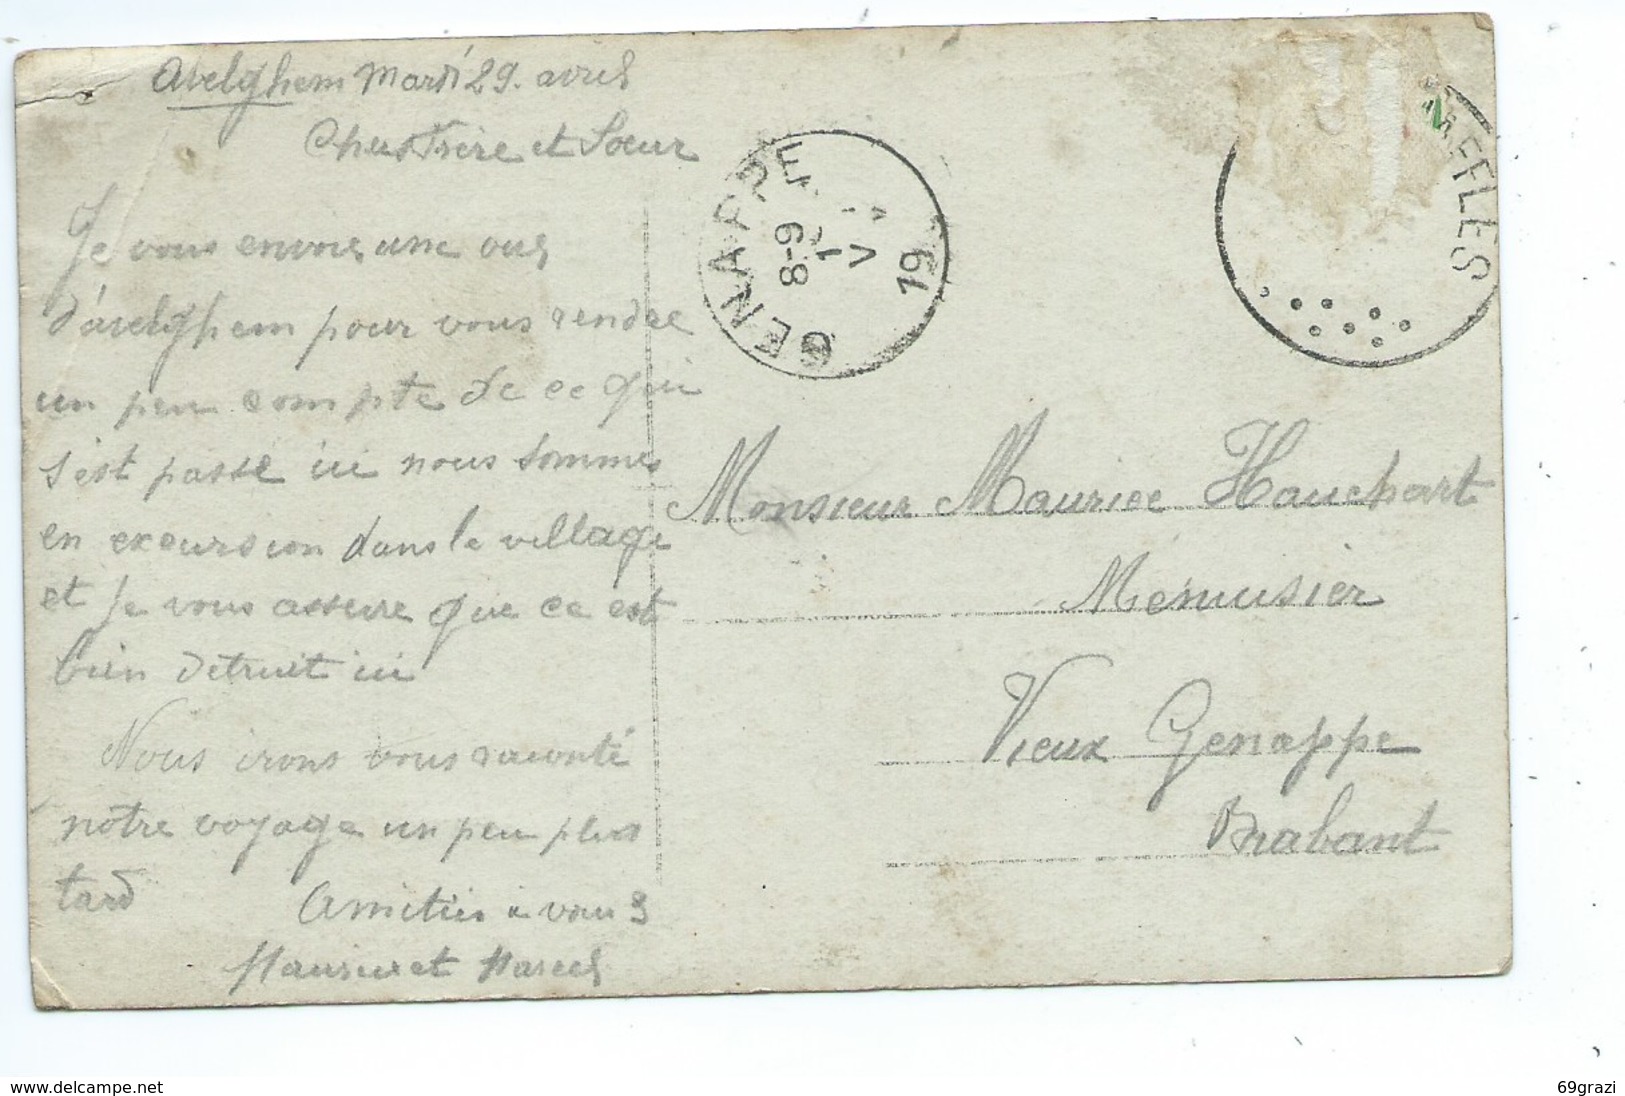 Avelghem Mardi 29. avril
Chers Frère et Sœur
Je vous envoie une vue
d'avelghem pour vous rendre
un peu compte de ce qui
s'est passé ici nous sommes
en excursion dans le village
et je vous assure que ce est
bien detruit ici
Nous irons vous raconté
notre voyage un peu plus
tard
Amitiés a vous
et Marcel
GENAPPE
8-9
1
V
19
FFLES
Monsieur Maurice Hauchart
Menusier
Vieux Genappe
Brabant
www.delcampe.net
69grazi